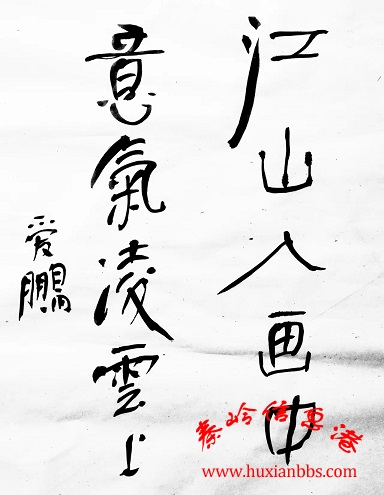 江山入画中
意氣凌雲上
爱鵬
秦岭信息港
www.huxianbbs.com